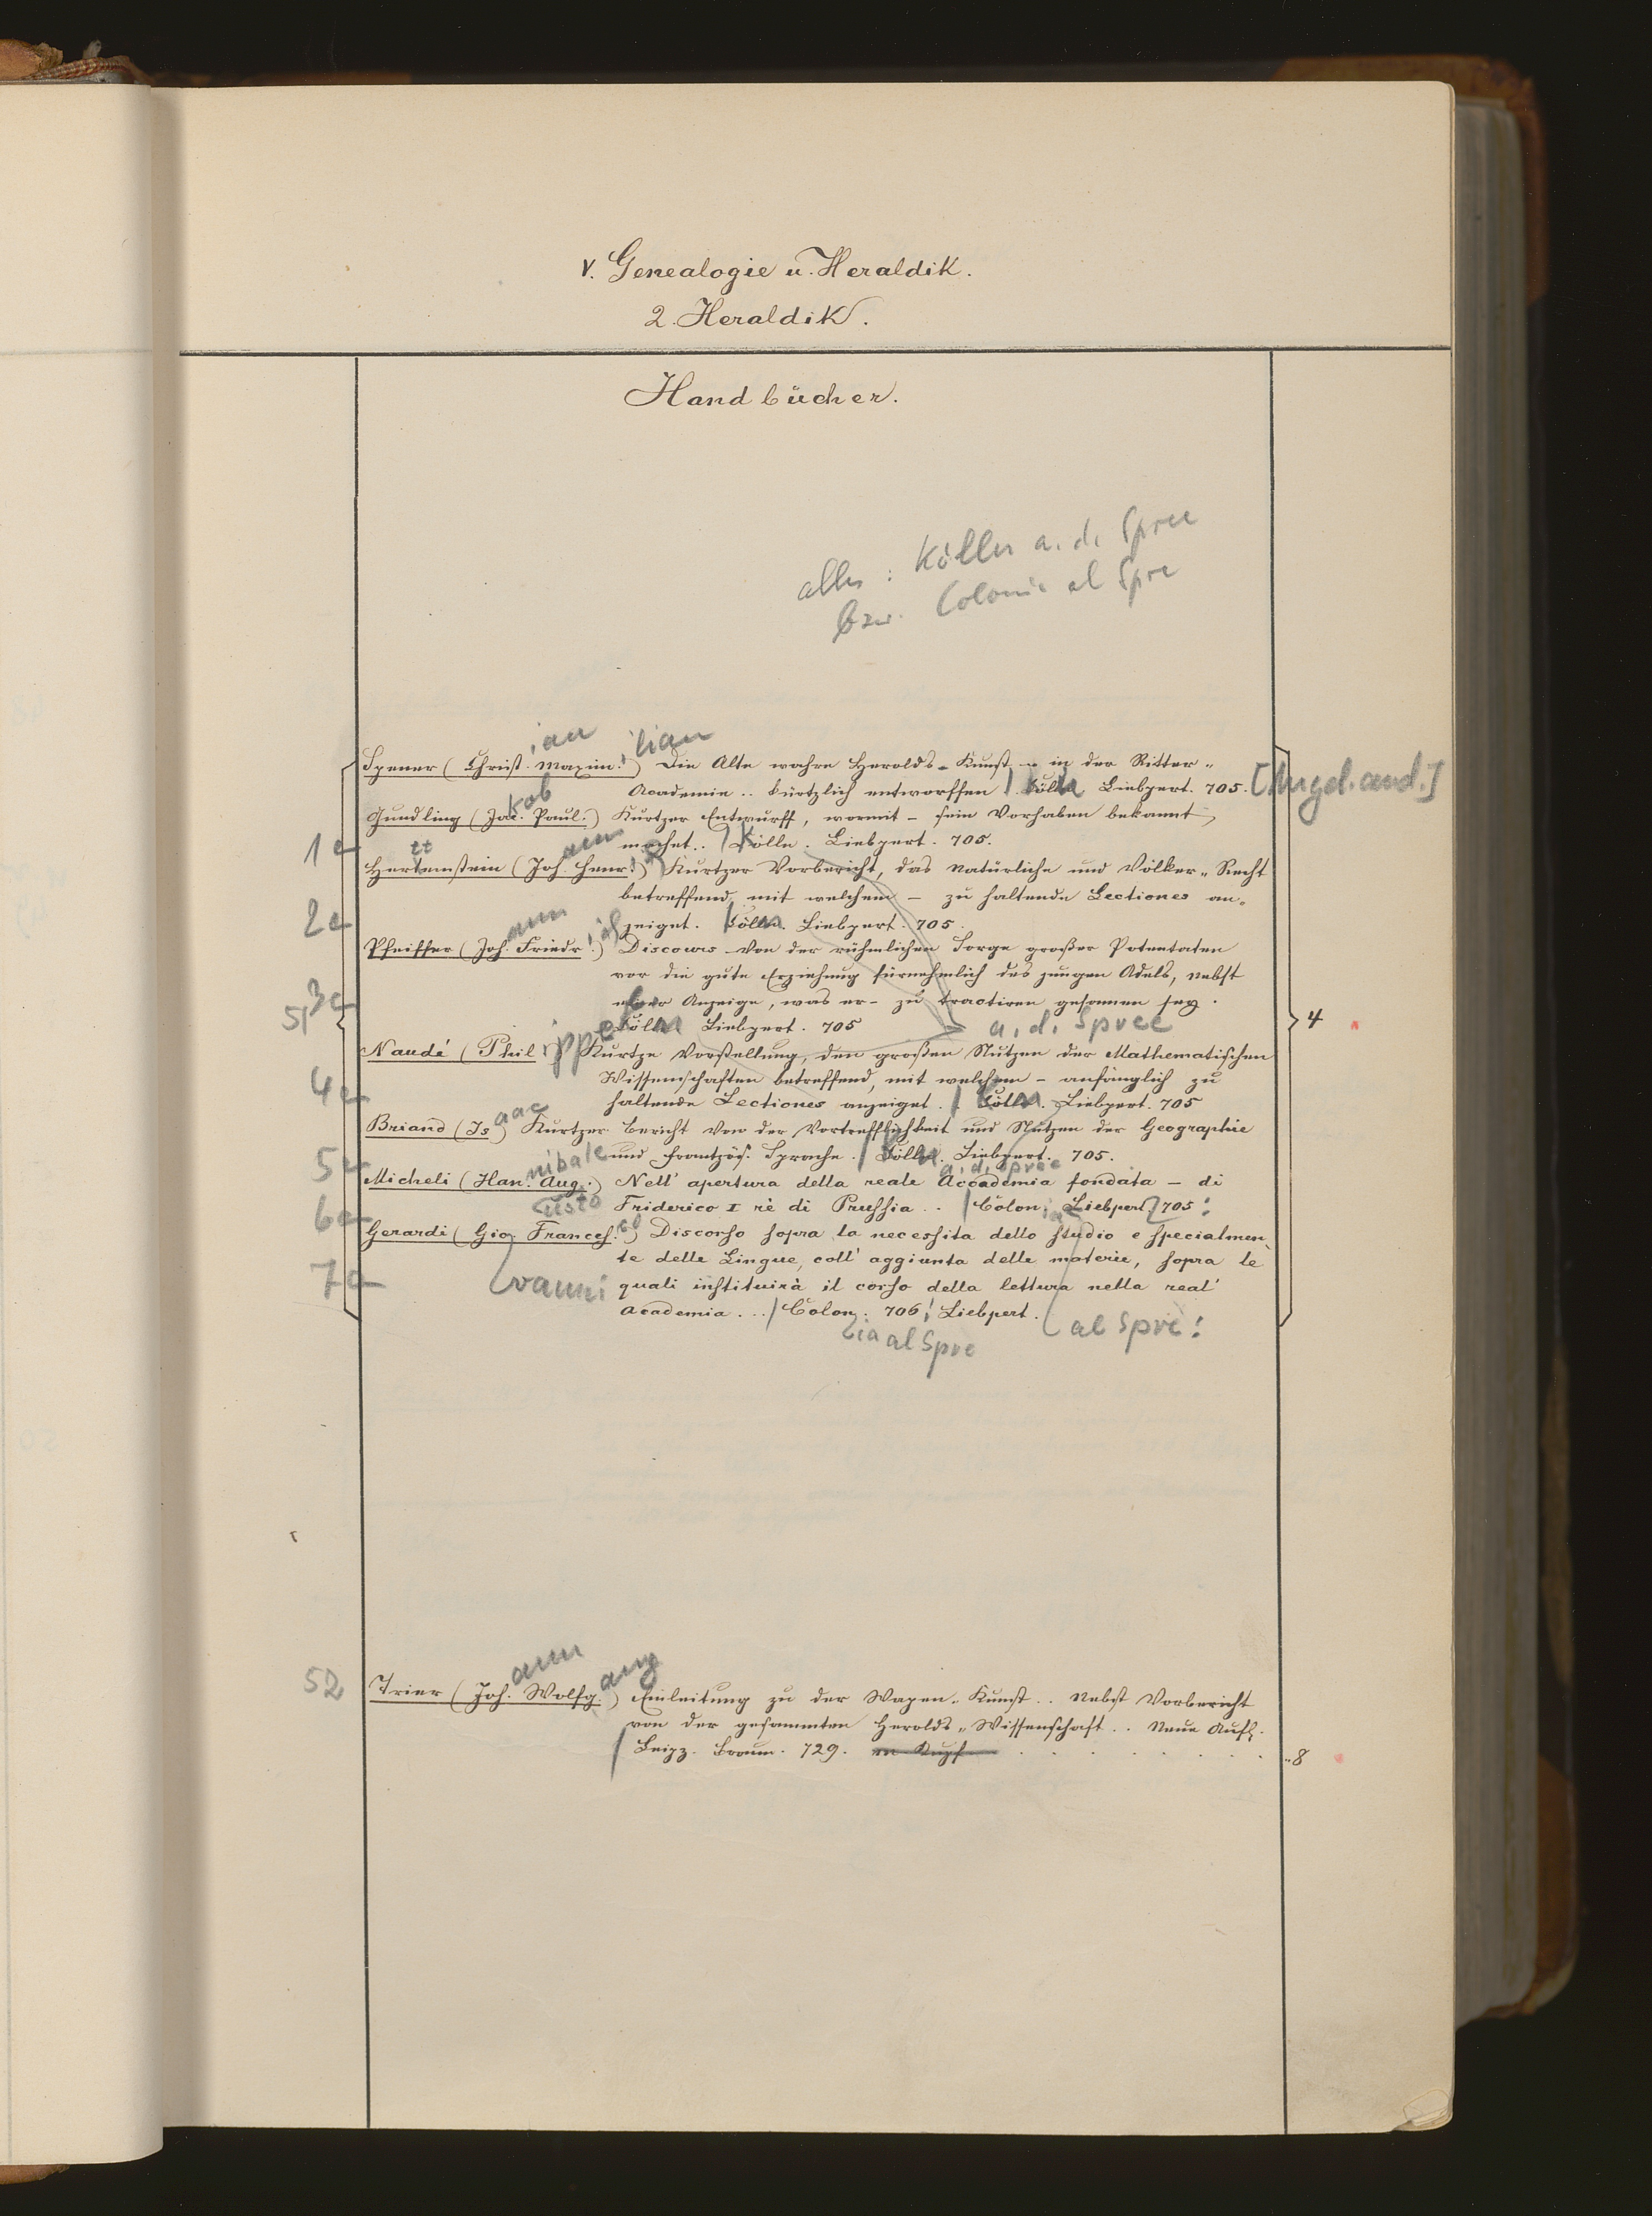 V. Genealogie u. Heraldik.
2. Heraldik.
Handbücher.
alles : Kölln a. d. Spree
bzw. Colonia al Spre
ian ilian
Spener (Christ. Maxim.) Die Alte wahre Herolds-Kunst – in der Ritter-
Academie .. kürtzlich entworffen | Kölln Liebpert. 705. [Angeb. and.]
kob
Gundling (Jac. Paul.) Kurtzer Entwurff, wormit – sein Vorhaben bekannt
1 machet .. | Kölln. Liebpert. 705.
tt ann
Hertemstein (Joh. Henr.) Kurtzer Vorbericht, das Natürliche und Völker-Recht
betreffend, mit welchem – zu haltende Lectiones an-
2 zeiget. | Kölln. Liebpert. 705.
ann ich
Pfeiffer (Joh. Friedr.) Discours von der rühmlichen Sorge großer Potentaten
vor die gute Erziehung fürnehmlich des jungen Adels, nebst
3 einer Anzeige, was er – zu tractiren gesonnen sey.
51 Kölln Liebpert. 705 a. d. Spree 4
Naudé (Philippe) Kurtze Vorstellung, den großen Nutzen der Mathematischen
Wissenschaften betreffend, mit welchem – anfänglich zu
4 haltende Lectiones anzeiget. | Kölln. Liebpert. 705
aac
Briand (Is.) Kurtzer Bericht von der Vortrefflichkeit und Nutzen der Geographie
5 und Frantzös. Sprache. | Kölln. Liebpert. 705.
nibale a. d. Spree
Micheli (Han. Aug.) Nell' apertura della reale Accademia fondata – di
6 usto Friderico I rè di Prussia .. | Colon. Liebpert 705!
co
Gerardi (Gio. Frances.) Discorso sopra la necessita dello studio e specialmen-
te delle Lingue, coll' aggiunta delle materie, sopra le
7 vanni quali instituirà il corso della lettura nella real'
Academia ... | Colon. 706! Liebpert.
ia al Spre al Spre!
ann ang
52 Trier (Joh. Wolfg.) Einleitung zu der Wapen-Kunst .. Nebst Vorbericht
von der gesammten Herolds-Wissenschaft .. Neue Aufl.
| Leipz. Braun. 729. m. Kupf . . . . . . . 8